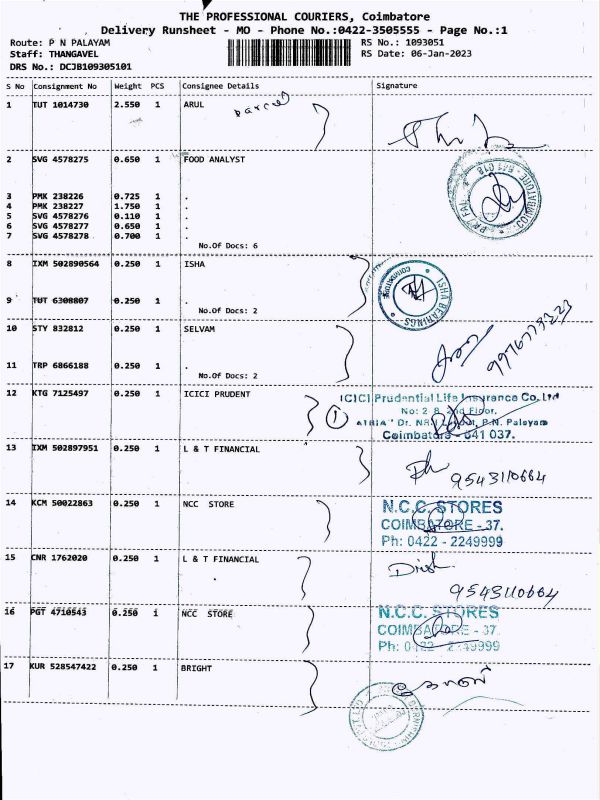 THE PROFESSIONAL COURIERS, Coimbatore
Delivery Runsheet - MO - Phone No.:0422-3505555 - Page No.:1
Route: P N PALAYAM
RS No.: 1093051
Staff: THANGAVEL
RS Date: 06-Jan-2023
DRS No.: DCJB109305101
S No Consignment No Weight PCS Consignee Details Signature
1 TUT 1014730 2.550 1 ARUL parcel
2 SVG 4578275 0.650 1 FOOD ANALYST
3 PMK 238226 0.725 1 .
4 PMK 238227 1.750 1 .
5 SVG 4578276 0.110 1 .
6 SVG 4578277 0.650 1 .
7 SVG 4578278 0.700 1 .
No.Of Docs: 6
8 IXM 502890564 0.250 1 ISHA
ISHA BEARINGS
COIMBATORE
9 TUT 6308807 0.250 1 .
No.Of Docs: 2
10 STY 832812 0.250 1 SELVAM
11 TRP 6866188 0.250 1 .
No.Of Docs: 2
12 KTG 7125497 0.250 1 ICICI PRUDENT 1
ICICI Prudential Life Insurance Co. Ltd
No: 2 8, 2nd Floor,
Dr. P.N. Palayam
Coimbatore - 641 037.
13 IXM 502897951 0.250 1 L & T FINANCIAL
9543110664
14 KCM 50022863 0.250 1 NCC STORE
N.C.C. STORES
COIMBATORE - 37.
Ph: 0422 - 2249999
15 CNR 1762020 0.250 1 L & T FINANCIAL
.
9543110664
16 PGT 4710543 0.250 1 NCC STORE
N.C.C. STORES
COIMBATORE - 37.
Ph: 0422 - 2249999
17 KUR 528547422 0.250 1 BRIGHT